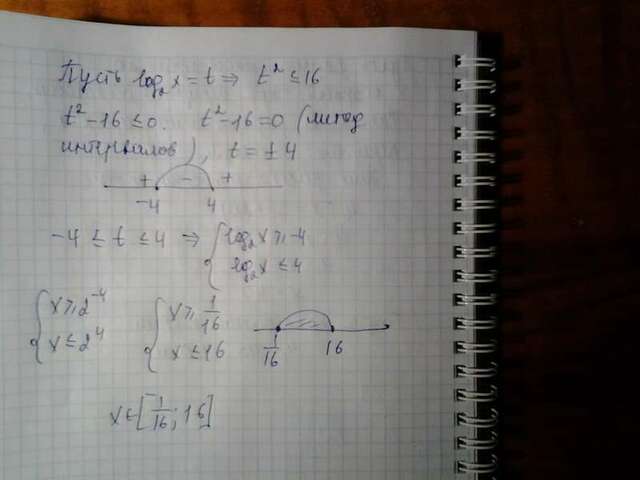 Пусть log₂x = t ⇒ t² ≤ 16
t² - 16 ≤ 0. t² - 16 = 0 (метод
интервалов), t = ± 4
+ - +
-4 4
-4 ≤ t ≤ 4 ⇒ { log₂x ⩾ -4
log₂x ≤ 4
{ x ⩾ 2⁻⁴ { x ⩾ 1/16
x ≤ 2⁴ x ≤ 16
1/16 16
x ∈ [1/16; 16]